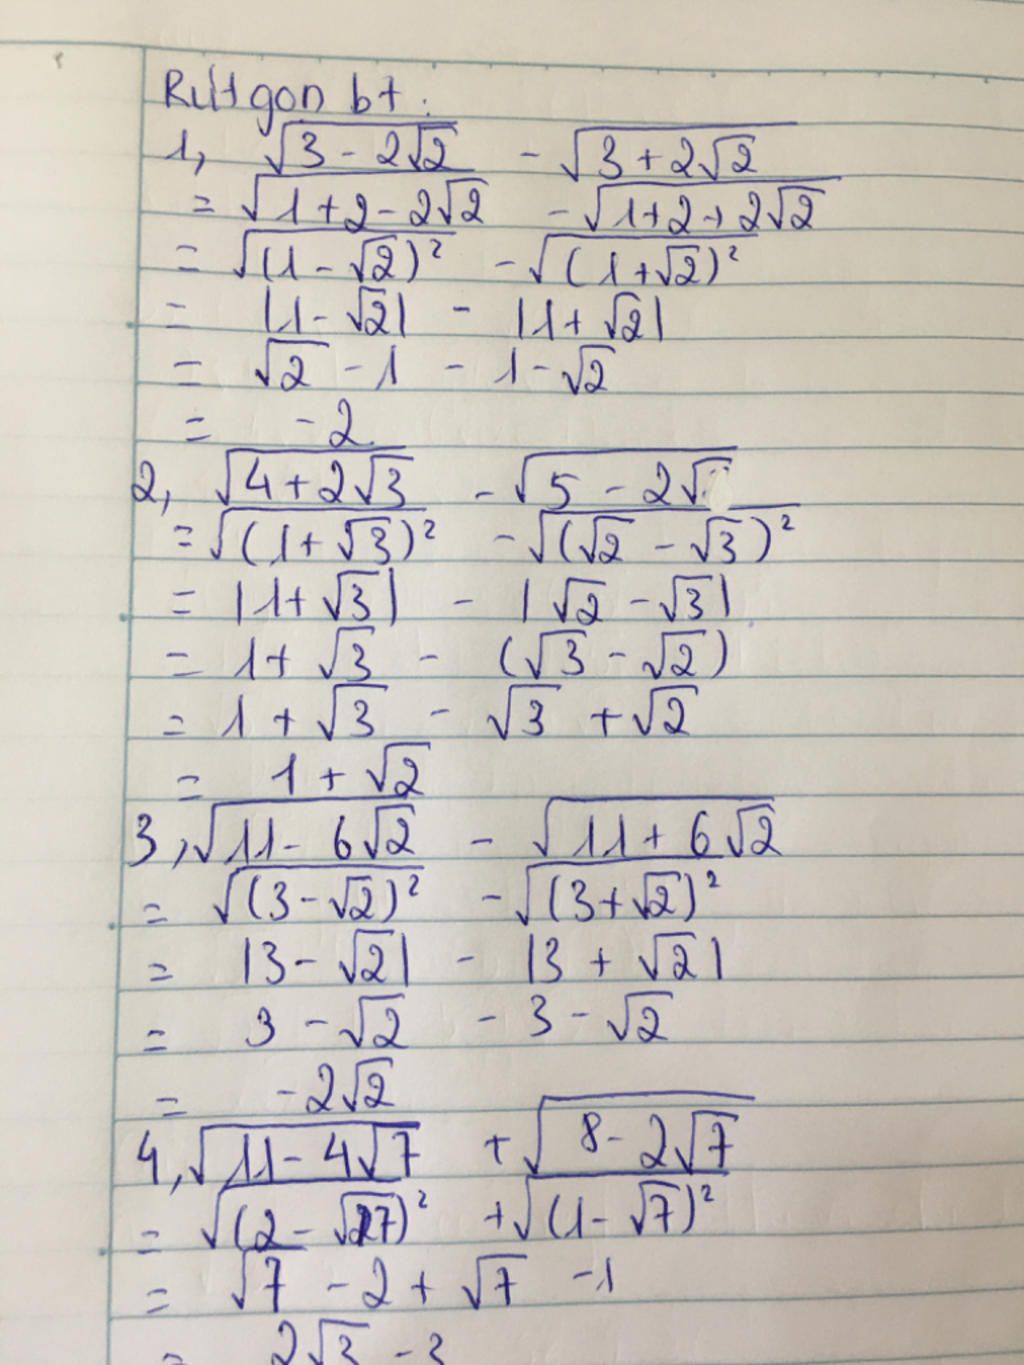 Rút gọn bt:
1, √(3 - 2√2) - √(3 + 2√2)
= √(1 + 2 - 2√2) - √(1 + 2 + 2√2)
= √((1 - √2)²) - √((1 + √2)²)
= |1 - √2| - |1 + √2|
= √2 - 1 - 1 - √2
= -2
2, √(4 + 2√3) - √(5 - 2√
= √((1 + √3)²) - √((√2 - √3)²)
= |1 + √3| - |√2 - √3|
= 1 + √3 - (√3 - √2)
= 1 + √3 - √3 + √2
= 1 + √2
3, √(11 - 6√2) - √(11 + 6√2)
= √((3 - √2)²) - √((3 + √2)²)
= |3 - √2| - |3 + √2|
= 3 - √2 - 3 - √2
= -2√2
4, √(11 - 4√7) + √(8 - 2√7)
= √((2 - √7)²) + √((1 - √7)²)
= √7 - 2 + √7 - 1
= 2√3 - 3